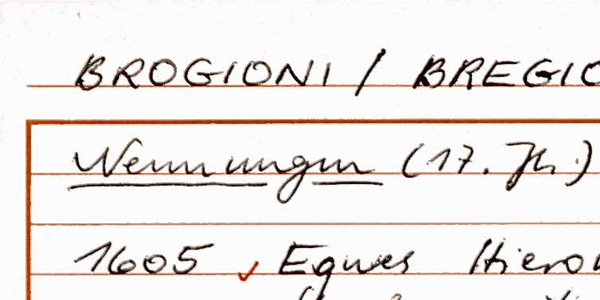 BROGIONI / BREGIO
Nennungen (17. Jh.)
1605 Eques Hieron